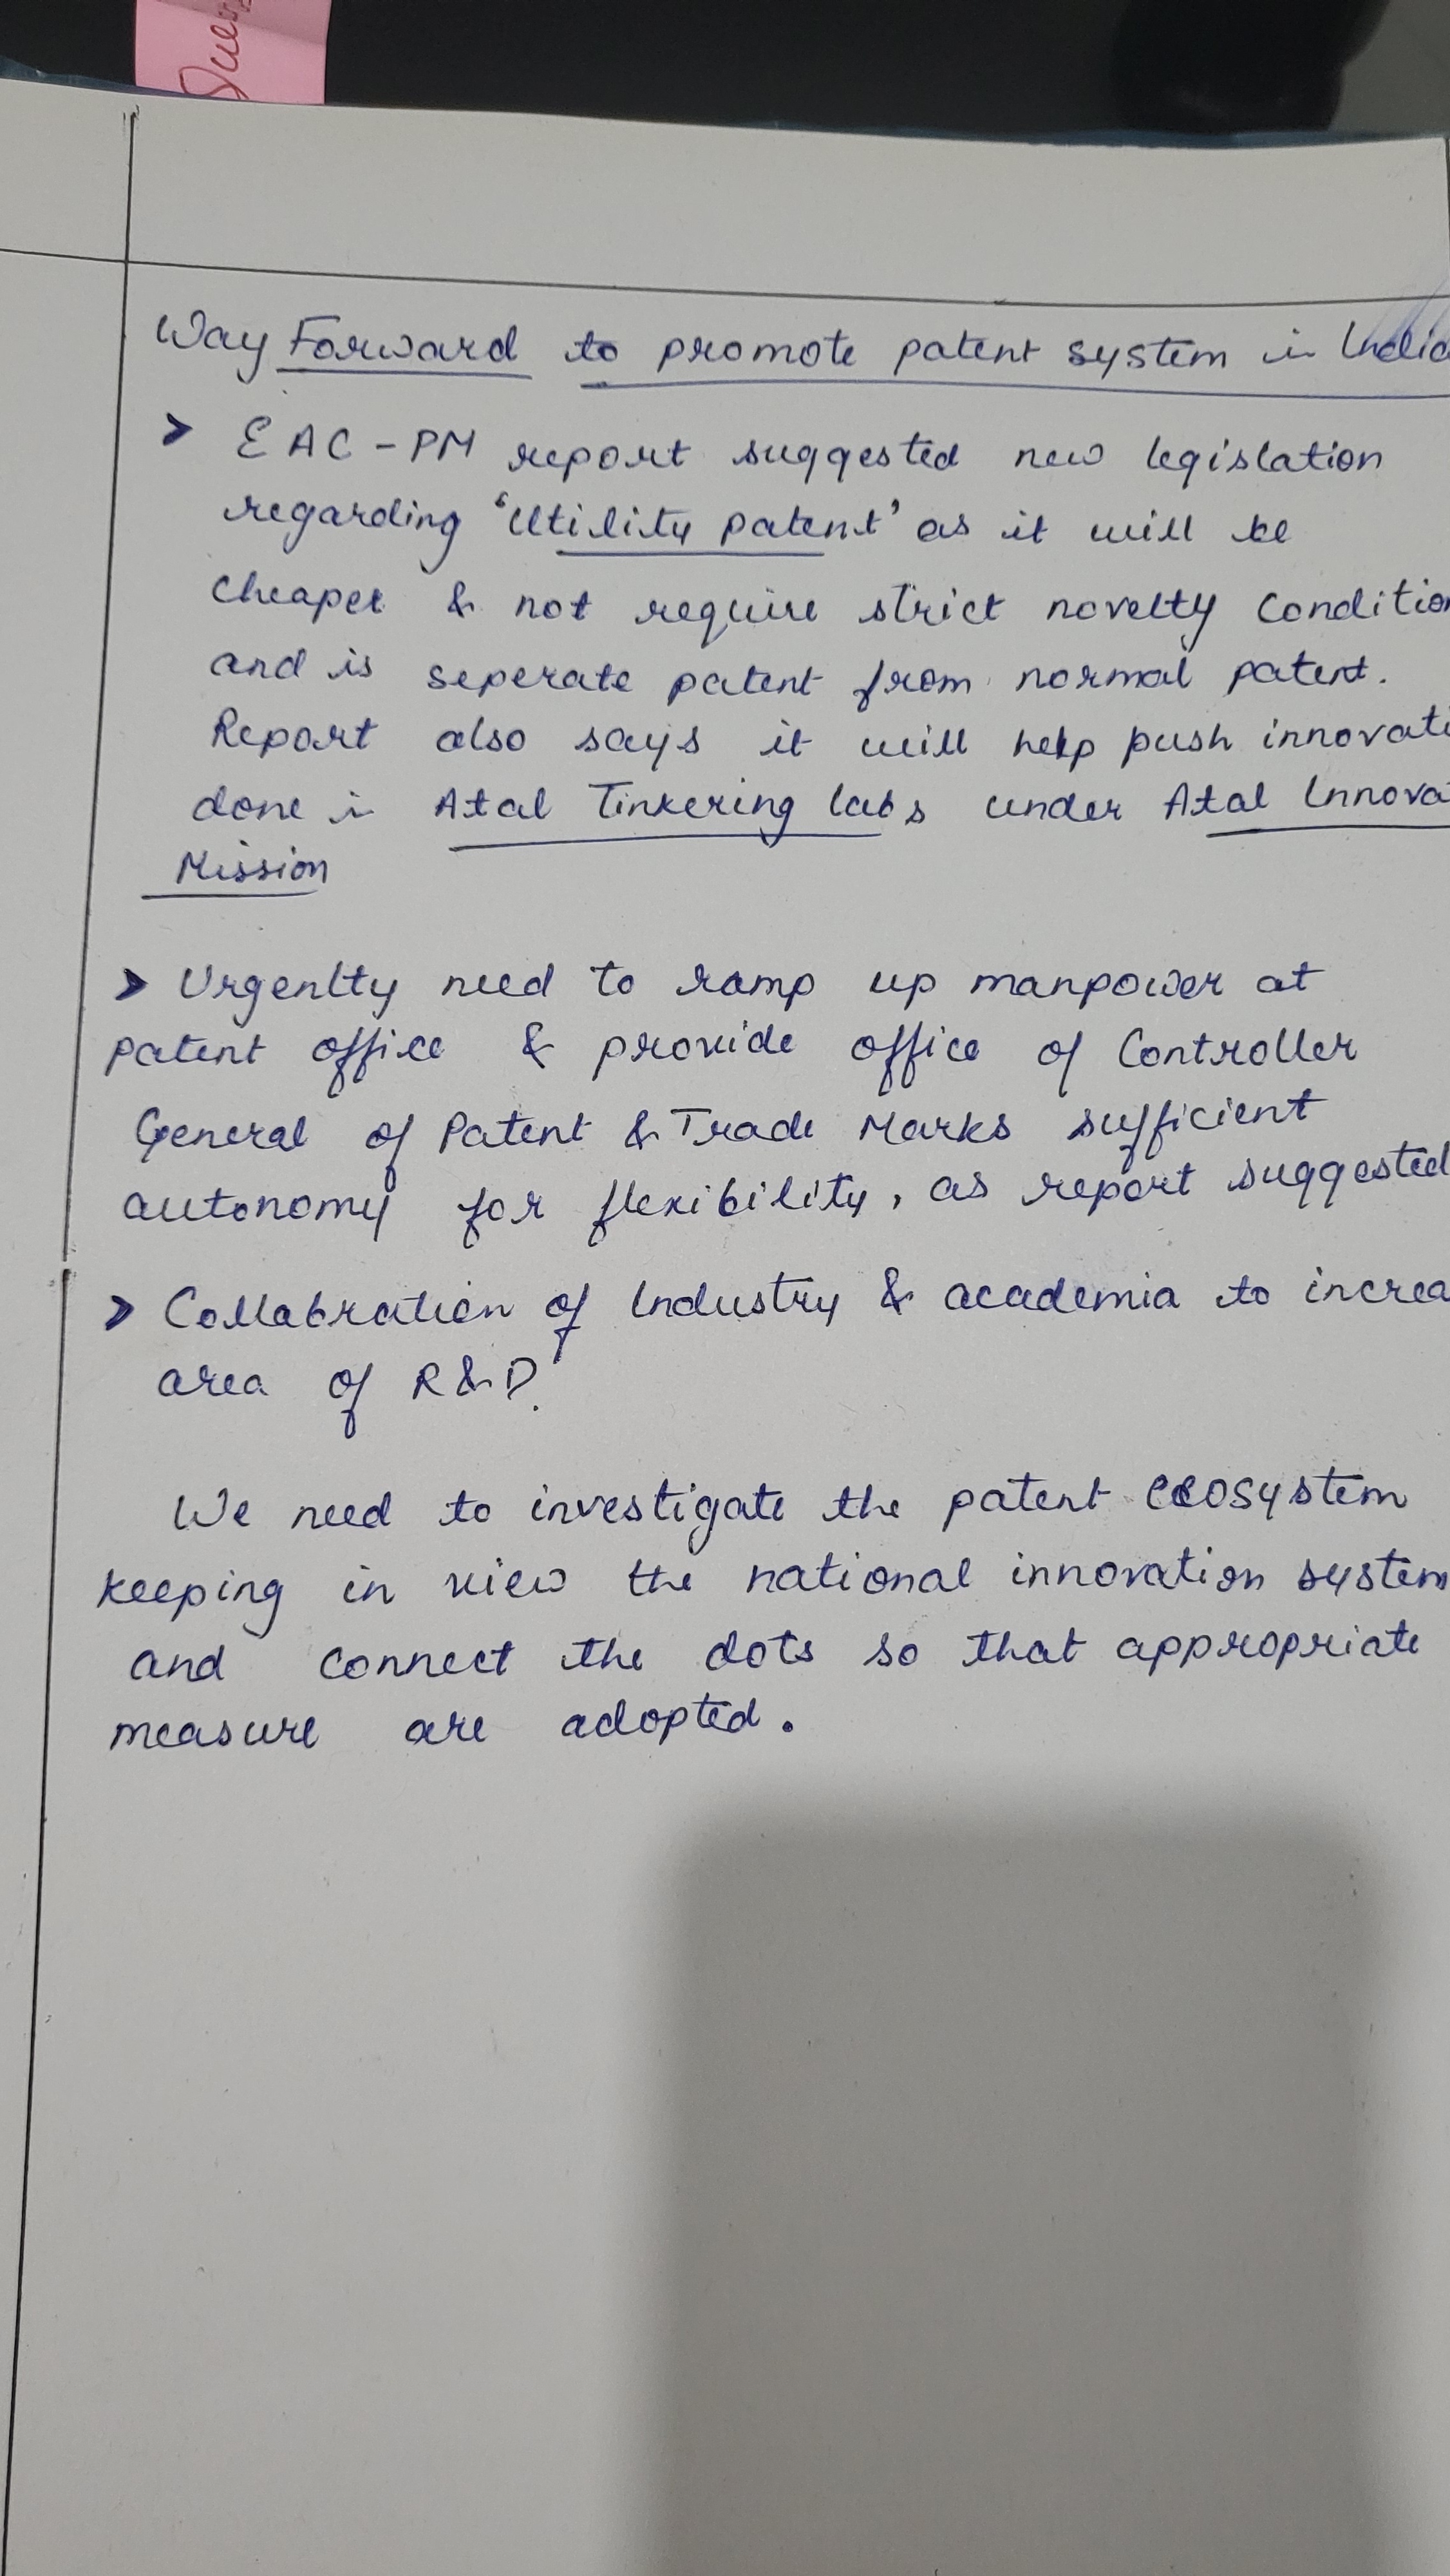 Que
Way Forward to promote patent system in India
> EAC-PM report suggested new legislation
regarding 'Utility patent' as it will be
cheaper & not require strict novelty condition
and is seperate patent from normal patent.
Report also says it will help push innovati
done in Atal Tinkering labs under Atal Innova
Mission
> Urgenlty need to ramp up manpower at
patent office & provide office of Controller
General of Patent & Trade Marks sufficient
autonomy for flexibility, as report suggested
> Collabration of Industry & academia to increa
area of R&D.
We need to investigate the patent ecosystem
keeping in view the national innovation system
and connect the dots so that appropriate
measure are adopted.